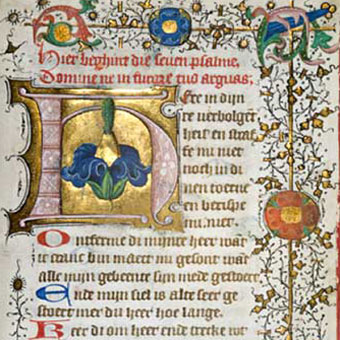 Hier beghint die seuen psalme,
Domine ne in furore tuo arguas;
Here in dijn
re verbolgē
heit en straf
fe mi niet
noch in di
nen toerne
en berispe
mi niet
Ontferme di mijnre heer wāt
ic cranc bin maect mi gesont wāt
alle mijn gebeente sijn mede gestoert
Ende mijn siel is alte seer ge
stoert mer du heer hoe lange.
Keer di om heer ende trecke wt